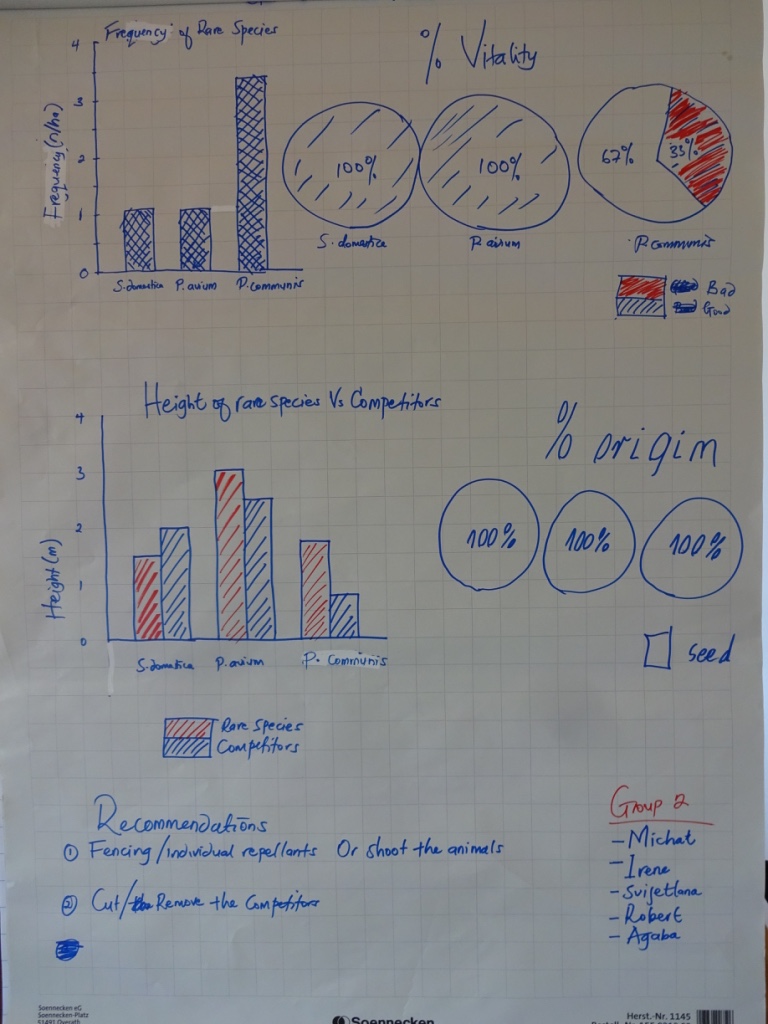 Frequency of Rare Species
% Vitality
4
3
2
1
0
Frequency (n/ha)
S.domestica P.avium P.communis
100%
100%
67% 33%
S.domestica
P.avium
P.communis
Bad
Good
Height of rare species Vs Competitors
4
3
2
1
0
Height (m)
S.domestica P.avium P. Communis
Rare Species
Competitors
% origim
100% 100% 100%
seed
Recommendations
① Fencing/individual repellants Or Shoot the animals
② Cut/ Remove the Competitors
Group 2
- Michat
- Irene
- Svijetlana
- Robert
- Agaba
Soennecken eG
Soennecken-Platz
51491 Overath
Soennecken
Herst.-Nr. 1145